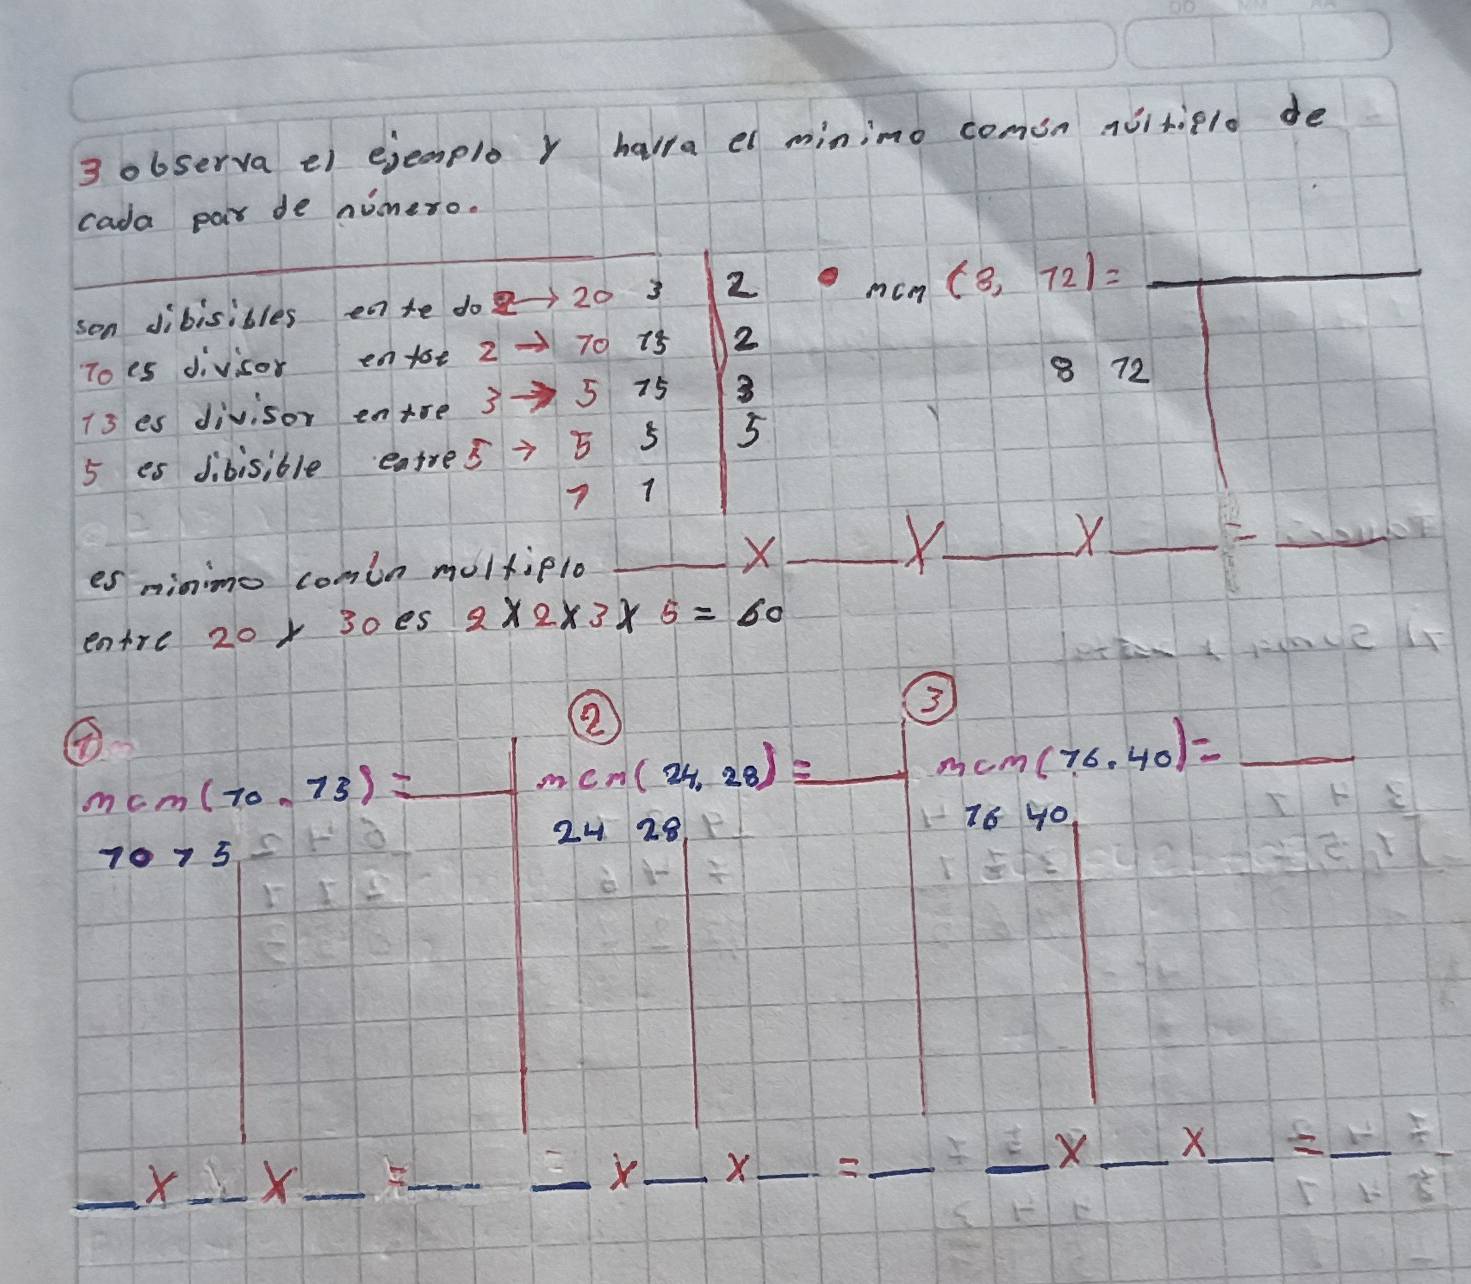 3 observa el ejemplo y halla el minimo común múltiplo de
cada par de número.
son dibisibles ente do 2 → 20 3 | 2
10 es divisor entre 2 → 10 15 | 2
13 es divisor entre 3 → 5 15 | 3
5 es dibisible entre 5 → 5 5 | 5
1 1
• mcm (8, 12) = ____
8 12
es minimo común multiplo ___ X ___ X ___ X ___ = ___
entre 20 y 30 es 2 X 2 X 3 X 5 = 60
①
mcm (10, 13) = ___
10 15
___ X ___ X ___ = ___
②
mcm (24, 28) = ___
24 28
___ X ___ X ___ = ___
③
mcm (16, 40) = ___
16 40
___ X ___ X ___ = ___